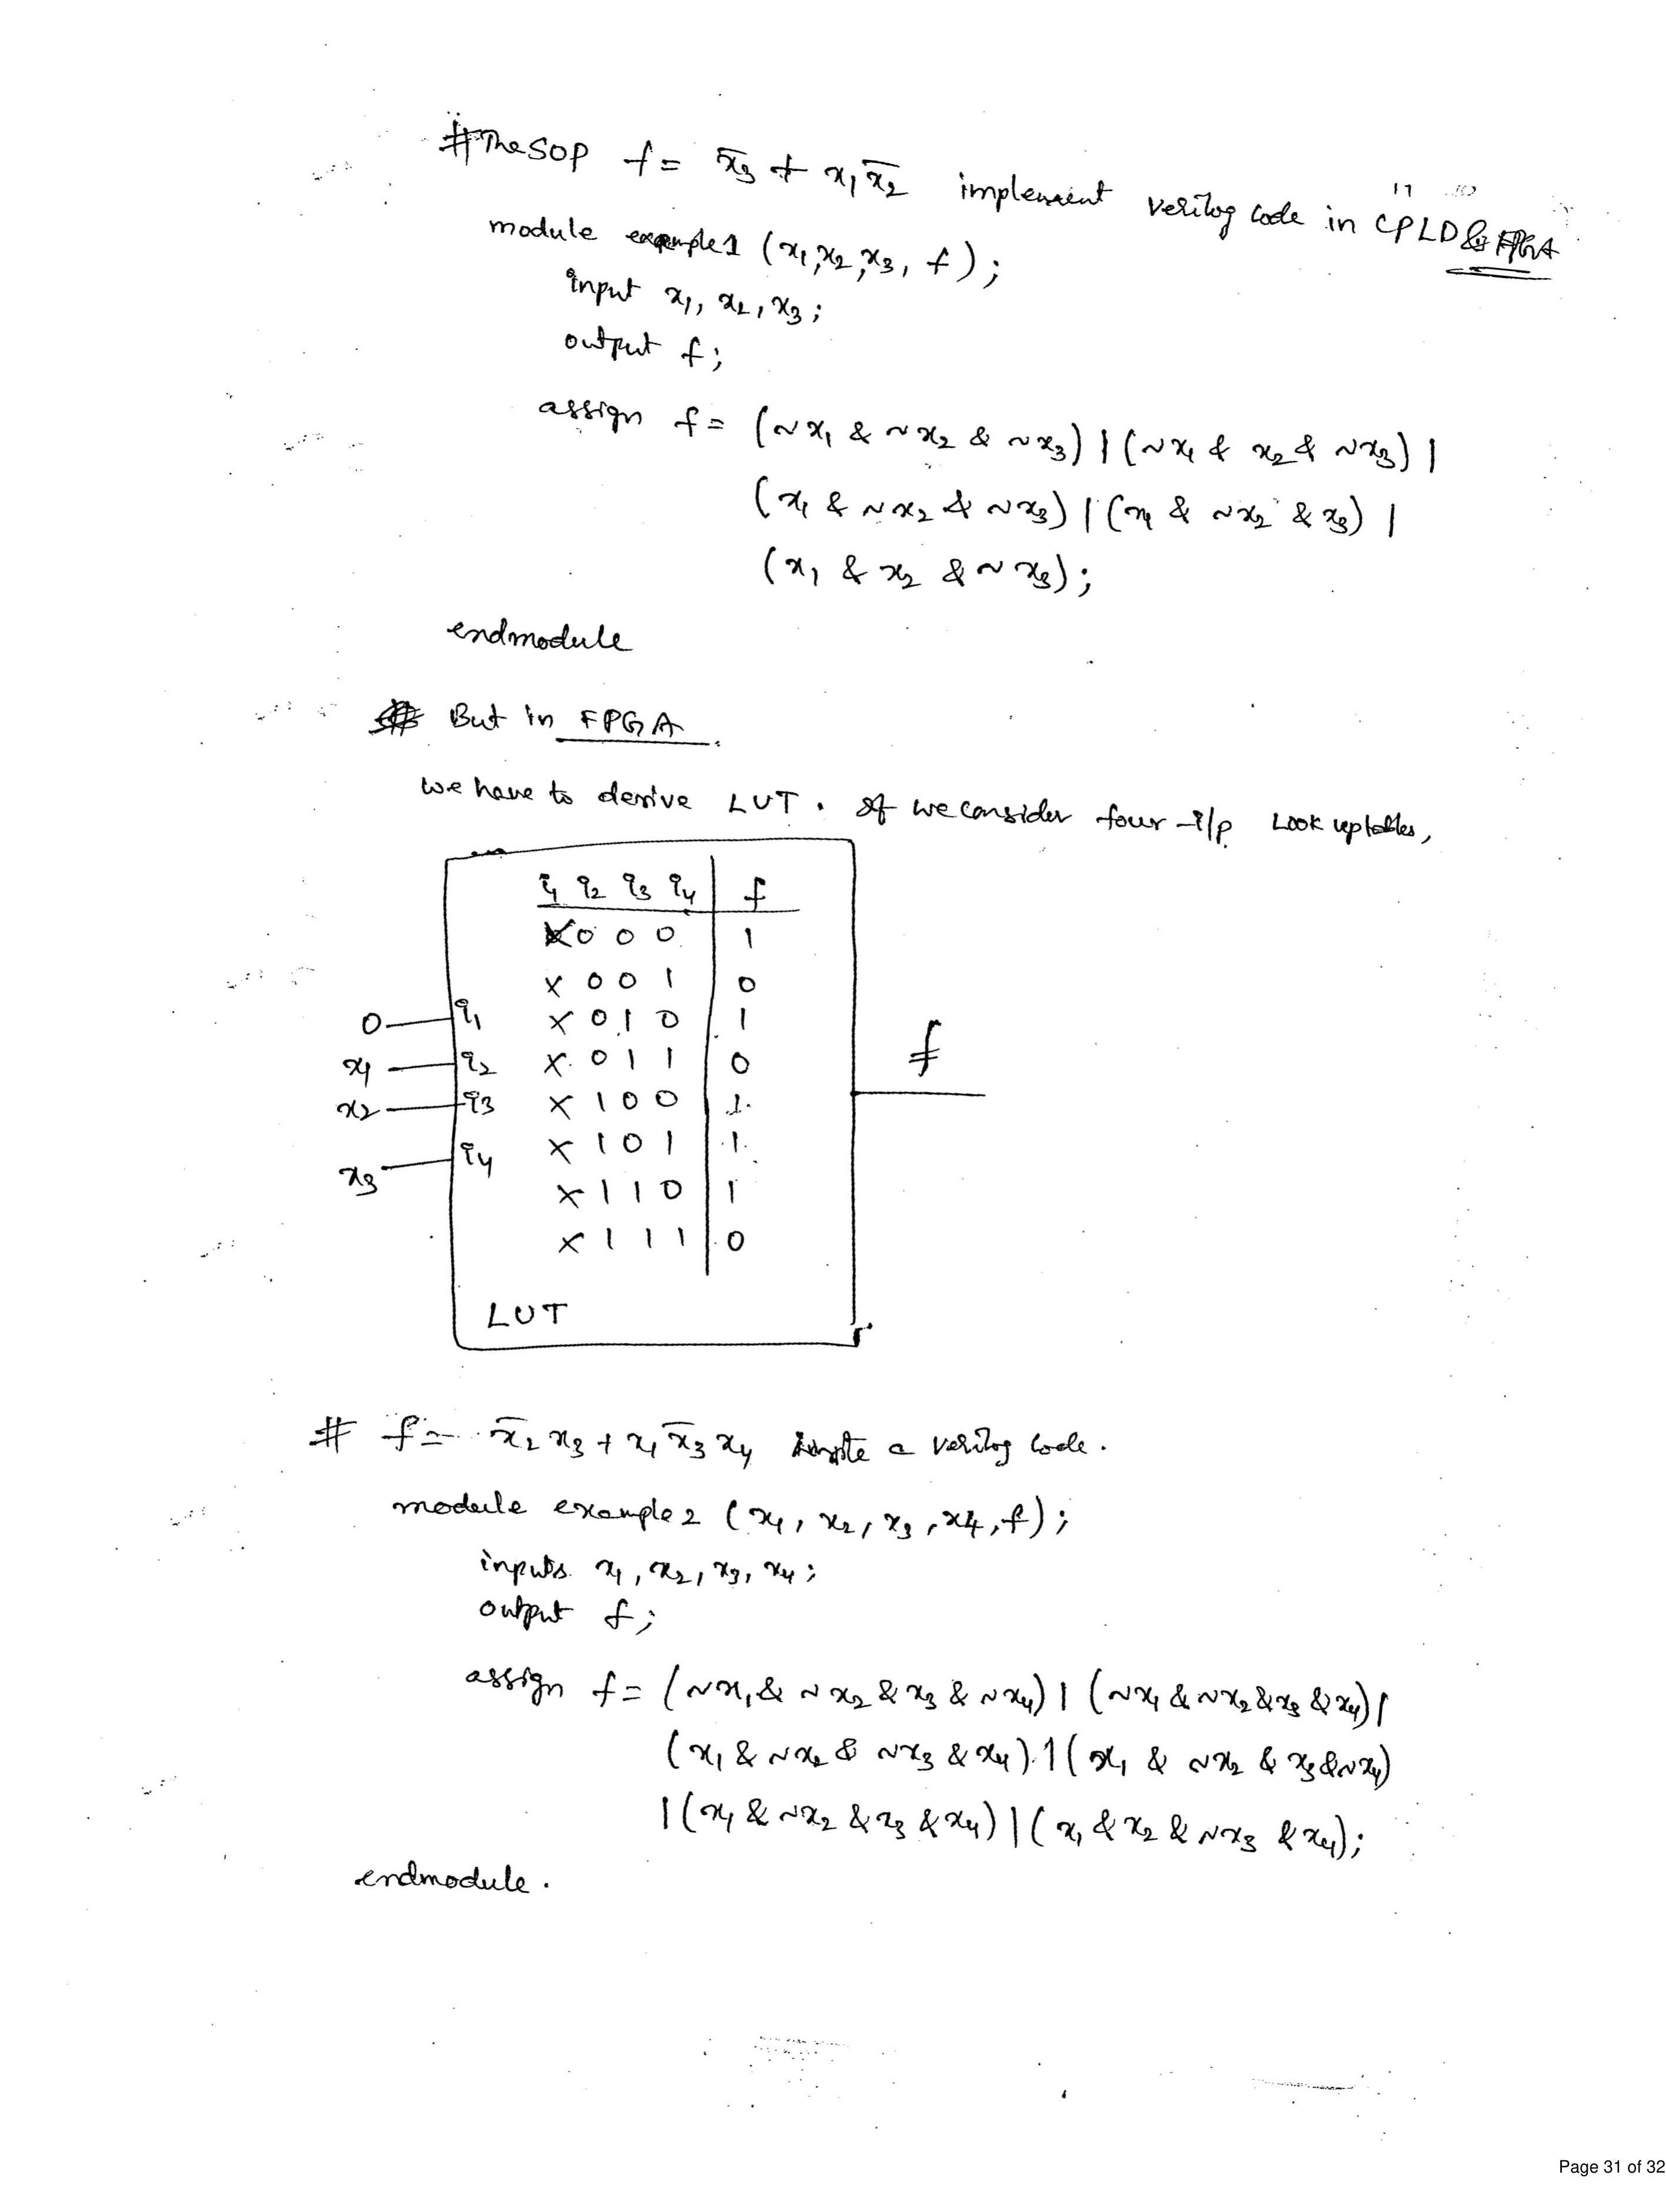 #The SOP f = x̄3 + x1x̄2 implement verilog code in CPLD & FPGA
module example1 (x1,x2,x3, f);
input x1, x2, x3;
output f;
assign f = (~x1 & ~x2 & ~x3) | (~x1 & x2 & ~x3) |
(x1 & ~x2 & ~x3) | (x1 & ~x2 & x3) |
(x1 & x2 & ~x3);
endmodule
But in FPGA
We have to derive LUT. If we consider four-i/p Look up tables,
i1 i2 i3 i4 f
X 0 0 0 1
X 0 0 1 0
X 0 1 0 1
X 0 1 1 0
X 1 0 0 1
X 1 0 1 1
X 1 1 0 1
X 1 1 1 0
0 i1
x1 i2
x2 i3
x3 i4
f
LUT
# f = x̄2x3 + x1x̄3x4 write a verilog code.
module example2 (x1, x2, x3, x4, f);
inputs x1, x2, x3, x4;
output f;
assign f = (~x1 & ~x2 & x3 & ~x4) | (~x1 & ~x2 & x3 & x4) |
(x1 & ~x2 & ~x3 & x4) | (x1 & ~x2 & x3 & ~x4)
| (x1 & ~x2 & x3 & x4) | (x1 & x2 & ~x3 & x4);
endmodule.
Page 31 of 32